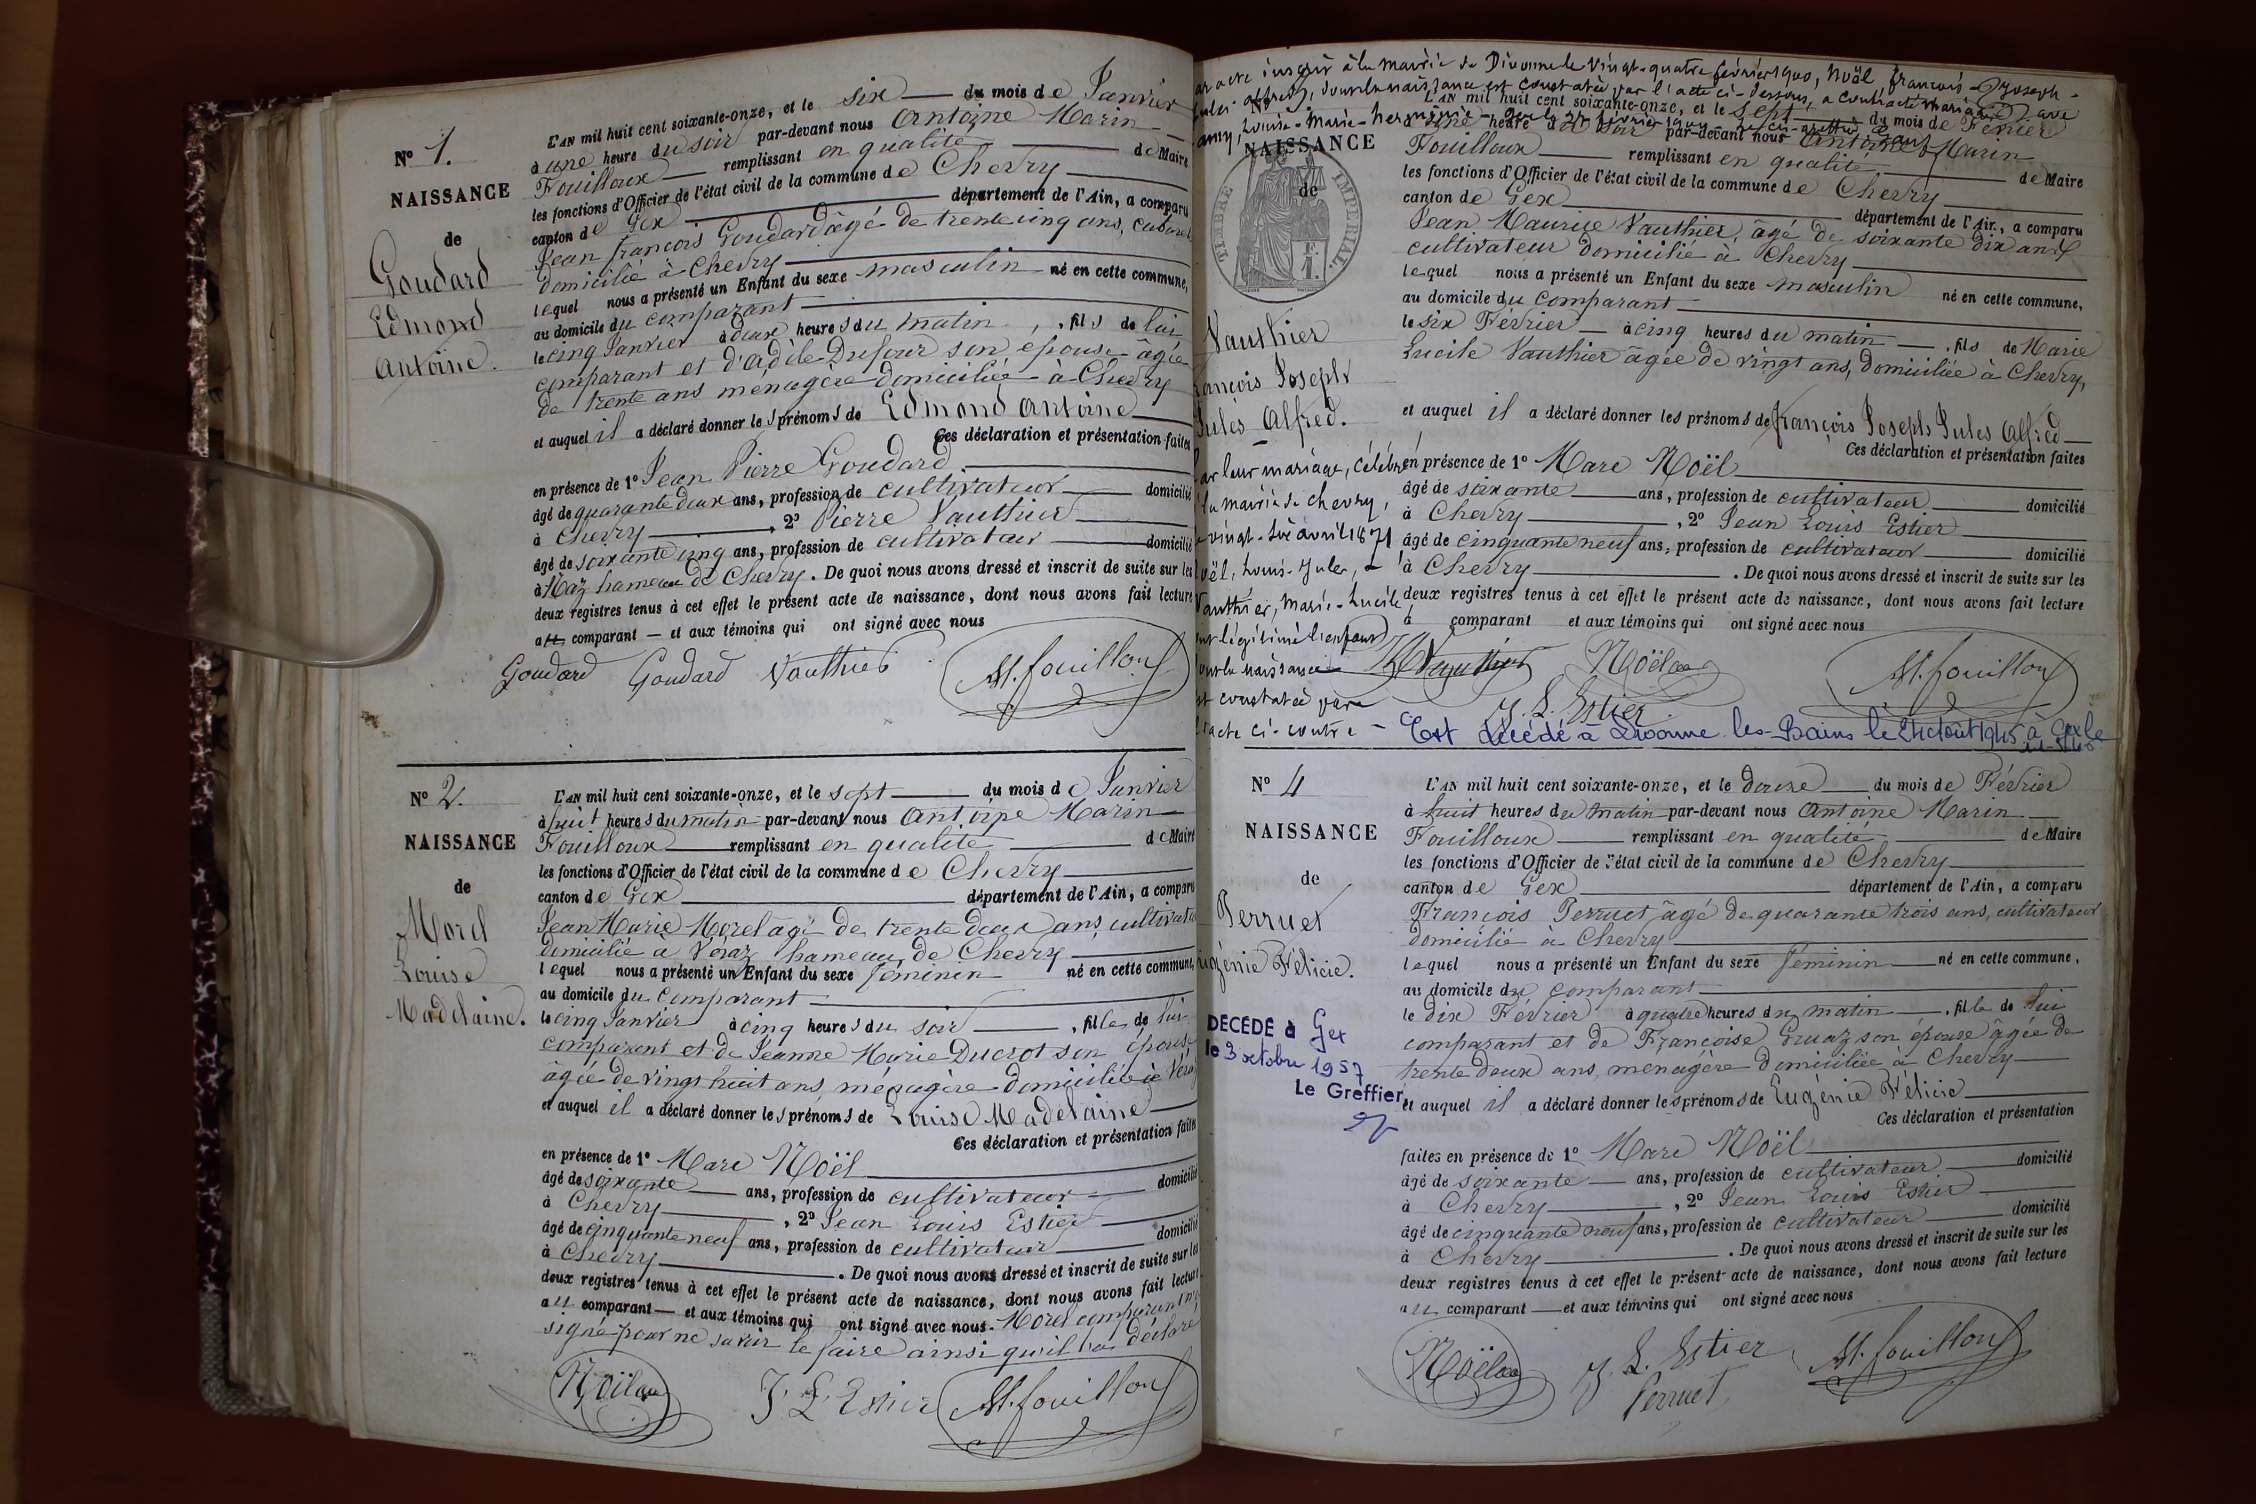 N° 1.
NAISSANCE
de
Goudard
Edmond
Antoine.
L'AN mil huit cent soixante-onze, et le six du mois de Janvier
à une heure du soir par-devant nous Antoine Marin
Fouilloux remplissant en qualité de Maire
les fonctions d'Officier de l'état civil de la commune de Chevry
canton de Gex département de l'Ain, a comparu
Jean françois Goudard âgé de trente cinq ans,
domicilié à Chevry
lequel nous a présenté un Enfant du sexe masculin né en cette commune,
au domicile du comparant
le cinq Janvier à deux heures du matin, fils de lui
comparant et d'Adèle Dufour son épouse âgée
de trente ans ménagère domiciliée à Chevry
et auquel il a déclaré donner les prénoms de Edmond Antoine
Ces déclaration et présentation faites
en présence de 1° Jean Pierre Goudard
âgé de quarante deux ans, profession de cultivateur domicilié
à Chevry, 2° Pierre Vauthier
âgé de soixante cinq ans, profession de cultivateur domicilié
à Naz hameau de Chevry. De quoi nous avons dressé et inscrit de suite sur les
deux registres tenus à cet effet le présent acte de naissance, dont nous avons fait lecture
au comparant et aux témoins qui ont signé avec nous
Goudard Goudard Vauthier M. fouilloux
N° 2.
NAISSANCE
de
Morel
Louise
Madelaine.
L'AN mil huit cent soixante-onze, et le sept du mois de Janvier
à huit heures du matin par-devant nous Antoine Marin
Fouilloux remplissant en qualité de Maire
les fonctions d'Officier de l'état civil de la commune de Chevry
canton de Gex département de l'Ain, a comparu
Jean Marie Morel âgé de trente deux ans, cultivateur
domicilié à Véraz hameau de Chevry
lequel nous a présenté un Enfant du sexe féminin né en cette commune,
au domicile du comparant
le cinq Janvier à cinq heures du soir, fille de lui
comparant et de Jeanne Marie Ducrot son épouse
âgée de vingt huit ans, ménagère domiciliée à Véraz
et auquel il a déclaré donner les prénoms de Louise Madelaine
Ces déclaration et présentation faites
en présence de 1° Marc Noël
âgé de soixante ans, profession de cultivateur domicilié
à Chevry, 2° Jean Louis Estier
âgé de cinquante neuf ans, profession de cultivateur domicilié
à Chevry. De quoi nous avons dressé et inscrit de suite sur les
deux registres tenus à cet effet le présent acte de naissance, dont nous avons fait lecture
au comparant et aux témoins qui ont signé avec nous. Morel comparant n'a
signé pour ne savoir le faire ainsi qu'il l'a déclaré
Noël J. L. Estier M. fouilloux
par acte inscrit à la mairie de Divonne le vingt-quatre février 1900, Noël, françois-Joseph-
Jules-Alfred, dont la naissance est constatée par l'acte ci-dessous, a contracté mariage avec
Louise-Marie-Herminie
NAISSANCE
de
TIMBRE IMPÉRIAL
1 F.
Vauthier
françois Joseph
Jules Alfred.
L'AN mil huit cent soixante-onze, et le sept du mois de Février
à une heure du soir par-devant nous Antoine Marin
Fouilloux remplissant en qualité de Maire
les fonctions d'Officier de l'état civil de la commune de Chevry
canton de Gex département de l'Ain, a comparu
Jean Maurice Vauthier, âgé de soixante dix ans
cultivateur domicilié à Chevry
lequel nous a présenté un Enfant du sexe masculin né en cette commune,
au domicile du comparant
le six Février à cinq heures du matin, fils de Marie
Lucile Vauthier âgée de vingt ans, domiciliée à Chevry,
et auquel il a déclaré donner les prénoms de françois Joseph Jules Alfred
Ces déclaration et présentation faites
en présence de 1° Marc Noël
âgé de soixante ans, profession de cultivateur domicilié
à Chevry, 2° Jean Louis Estier
âgé de cinquante neuf ans, profession de cultivateur domicilié
à Chevry. De quoi nous avons dressé et inscrit de suite sur les
deux registres tenus à cet effet le présent acte de naissance, dont nous avons fait lecture
à comparant et aux témoins qui ont signé avec nous
Par leur mariage, célébré
à la mairie de Chevry,
le vingt-six avril 1871
Noël, Louis-Jules, et
Vauthier, Marie-Lucile
ont légitimé l'enfant
dont la naissance
est constatée par
l'acte ci-contre
Vauthier Noël M. fouilloux
J. L. Estier
Est décédé à Divonne les-Bains le 24 août 1945
N° 4
NAISSANCE
de
Perruet
Eugénie Félicie.
DÉCÉDÉ à Gex
le 3 octobre 1957
Le Greffier,
L'AN mil huit cent soixante-onze, et le douze du mois de Février
à huit heures du matin par-devant nous Antoine Marin
Fouilloux remplissant en qualité de Maire
les fonctions d'Officier de l'état civil de la commune de Chevry
canton de Gex département de l'Ain, a comparu
François Perruet âgé de quarante trois ans, cultivateur
domicilié à Chevry
lequel nous a présenté un Enfant du sexe féminin né en cette commune,
au domicile du comparant
le dix Février à quatre heures du matin, fille de lui
comparant et de Françoise Gruaz son épouse âgée de
trente deux ans, ménagère domiciliée à Chevry
et auquel il a déclaré donner les prénoms de Eugénie Félicie
Ces déclaration et présentation
faites en présence de 1° Marc Noël
âgé de soixante ans, profession de cultivateur domicilié
à Chevry, 2° Jean Louis Estier
âgé de cinquante neuf ans, profession de cultivateur domicilié
à Chevry. De quoi nous avons dressé et inscrit de suite sur les
deux registres tenus à cet effet le présent acte de naissance, dont nous avons fait lecture
au comparant et aux témoins qui ont signé avec nous
Noël J. L. Estier M. fouilloux
Perruet